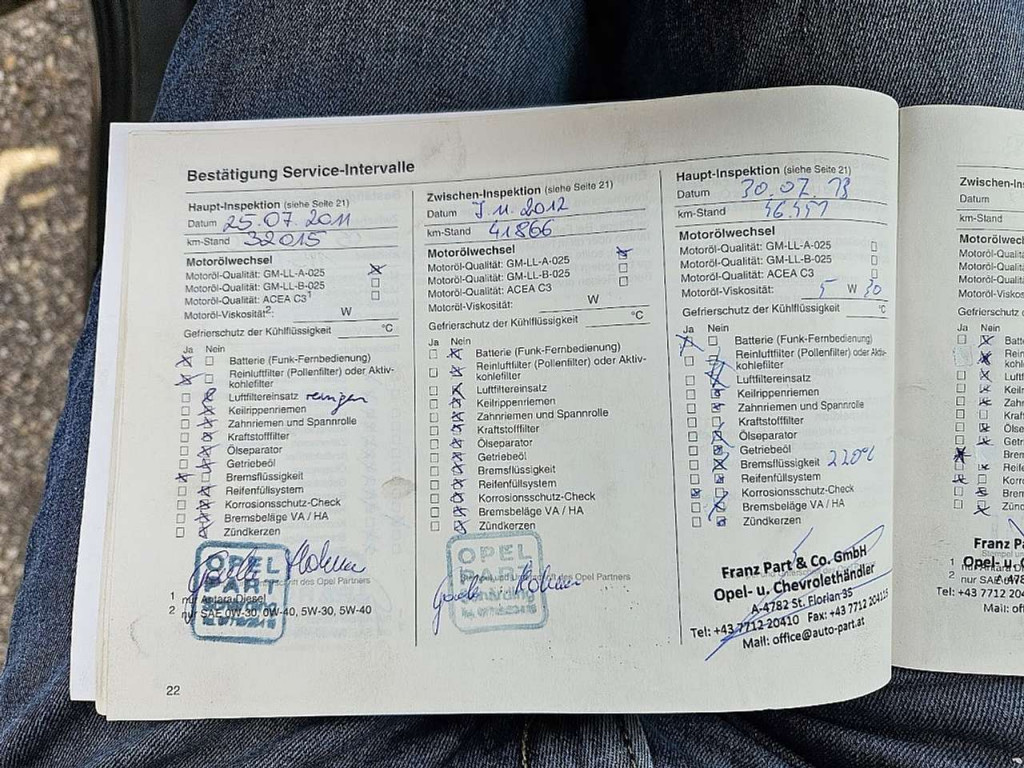 Bestätigung Service-Intervalle
Haupt-Inspektion (siehe Seite 21)
Datum 25.07.2011
km-Stand 32015
Motorölwechsel
Motoröl-Qualität: GM-LL-A-025
Motoröl-Qualität: GM-LL-B-025
Motoröl-Qualität: ACEA C3¹
Motoröl-Viskosität²: W
Gefrierschutz der Kühlflüssigkeit °C
Ja Nein
Batterie (Funk-Fernbedienung)
Reinluftfilter (Pollenfilter) oder Aktiv-
kohlefilter
Luftfiltereinsatz reinigen
Keilrippenriemen
Zahnriemen und Spannrolle
Kraftstofffilter
Ölseparator
Getriebeöl
Bremsflüssigkeit
Reifenfüllsystem
Korrosionsschutz-Check
Bremsbeläge VA / HA
Zündkerzen
OPEL
PART
Schärding
Stempel und Unterschrift des Opel Partners
1 nur Antara Diesel
2 nur SAE 0W-30, 0W-40, 5W-30, 5W-40
22
Zwischen-Inspektion (siehe Seite 21)
Datum 11.2012
km-Stand 41866
Motorölwechsel
Motoröl-Qualität: GM-LL-A-025
Motoröl-Qualität: GM-LL-B-025
Motoröl-Qualität: ACEA C3
Motoröl-Viskosität: W
Gefrierschutz der Kühlflüssigkeit °C
Ja Nein
Batterie (Funk-Fernbedienung)
Reinluftfilter (Pollenfilter) oder Aktiv-
kohlefilter
Luftfiltereinsatz
Keilrippenriemen
Zahnriemen und Spannrolle
Kraftstofffilter
Ölseparator
Getriebeöl
Bremsflüssigkeit
Reifenfüllsystem
Korrosionsschutz-Check
Bremsbeläge VA / HA
Zündkerzen
OPEL
PART
Schärding
Stempel und Unterschrift des Opel Partners
Haupt-Inspektion (siehe Seite 21)
Datum 30.07.13
km-Stand
Motorölwechsel
Motoröl-Qualität: GM-LL-A-025
Motoröl-Qualität: GM-LL-B-025
Motoröl-Qualität: ACEA C3
Motoröl-Viskosität: 5 W 30
Gefrierschutz der Kühlflüssigkeit °C
Ja Nein
Batterie (Funk-Fernbedienung)
Reinluftfilter (Pollenfilter) oder Aktiv-
kohlefilter
Luftfiltereinsatz
Keilrippenriemen
Zahnriemen und Spannrolle
Kraftstofffilter
Ölseparator
Getriebeöl
Bremsflüssigkeit 220°C
Reifenfüllsystem
Korrosionsschutz-Check
Bremsbeläge VA / HA
Zündkerzen
Franz Part & Co. GmbH
Opel- u. Chevrolethändler
A-4782 St. Florian 35
Tel: +43 7712 20410 Fax: +43 7712 204115
Mail: office@auto-part.at
Zwischen-In
Datum
km-Stand
Motorölwech
Motoröl-Qualit
Motoröl-Qualit
Motoröl-Qualit
Motoröl-Visko
Gefrierschutz
Ja Nein
Batte
Rein
kohle
Luft
Keil
Zah
Kra
Öls
Get
Bre
Rei
Kor
Bre
Zün
Franz P
Opel- u. C
A-478
Tel: +43 7712
Mail: off